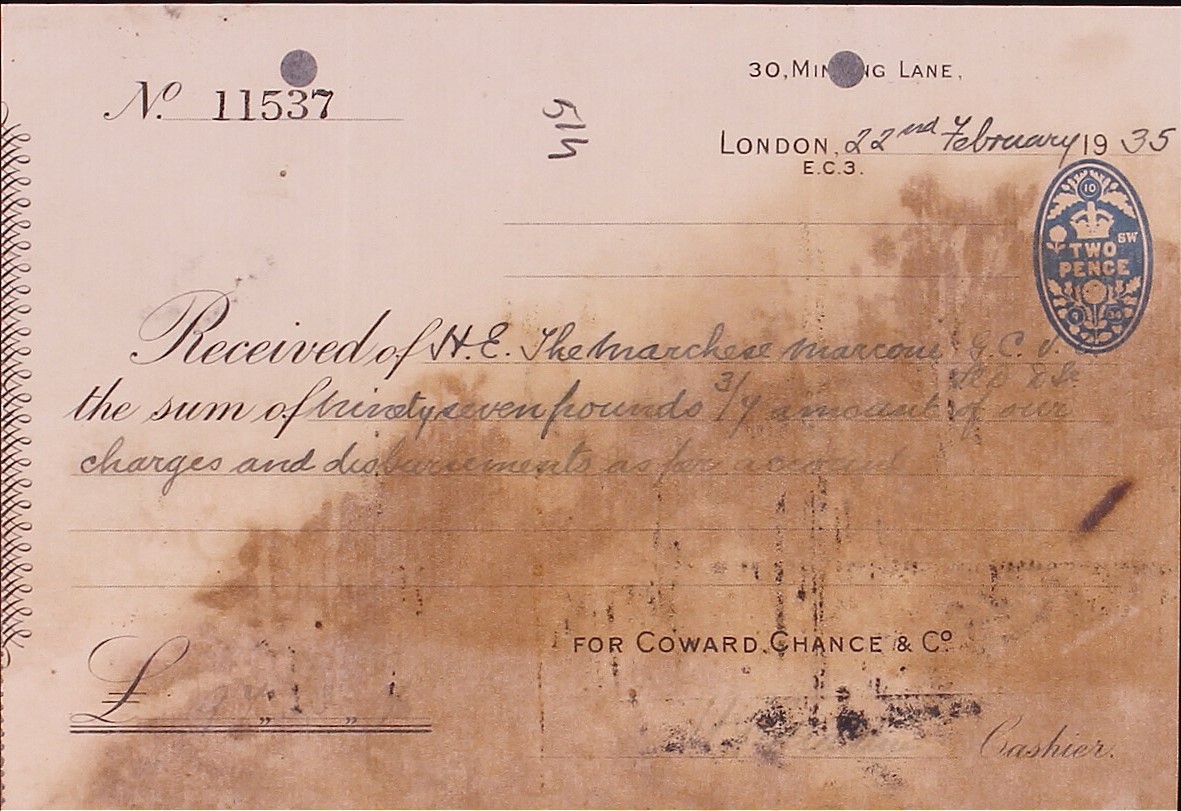 30, Min ng Lane,
No. 11537
514
London, 22nd February 1935
E.C.3.
10
SW
TWO
PENCE
Received of H.E. The Marchese Marconi G.C.V.
the sum of thirty seven pounds 3/4 amount of our
charges and disbursements as per account
£ " "
FOR COWARD, CHANCE & Co
Cashier.